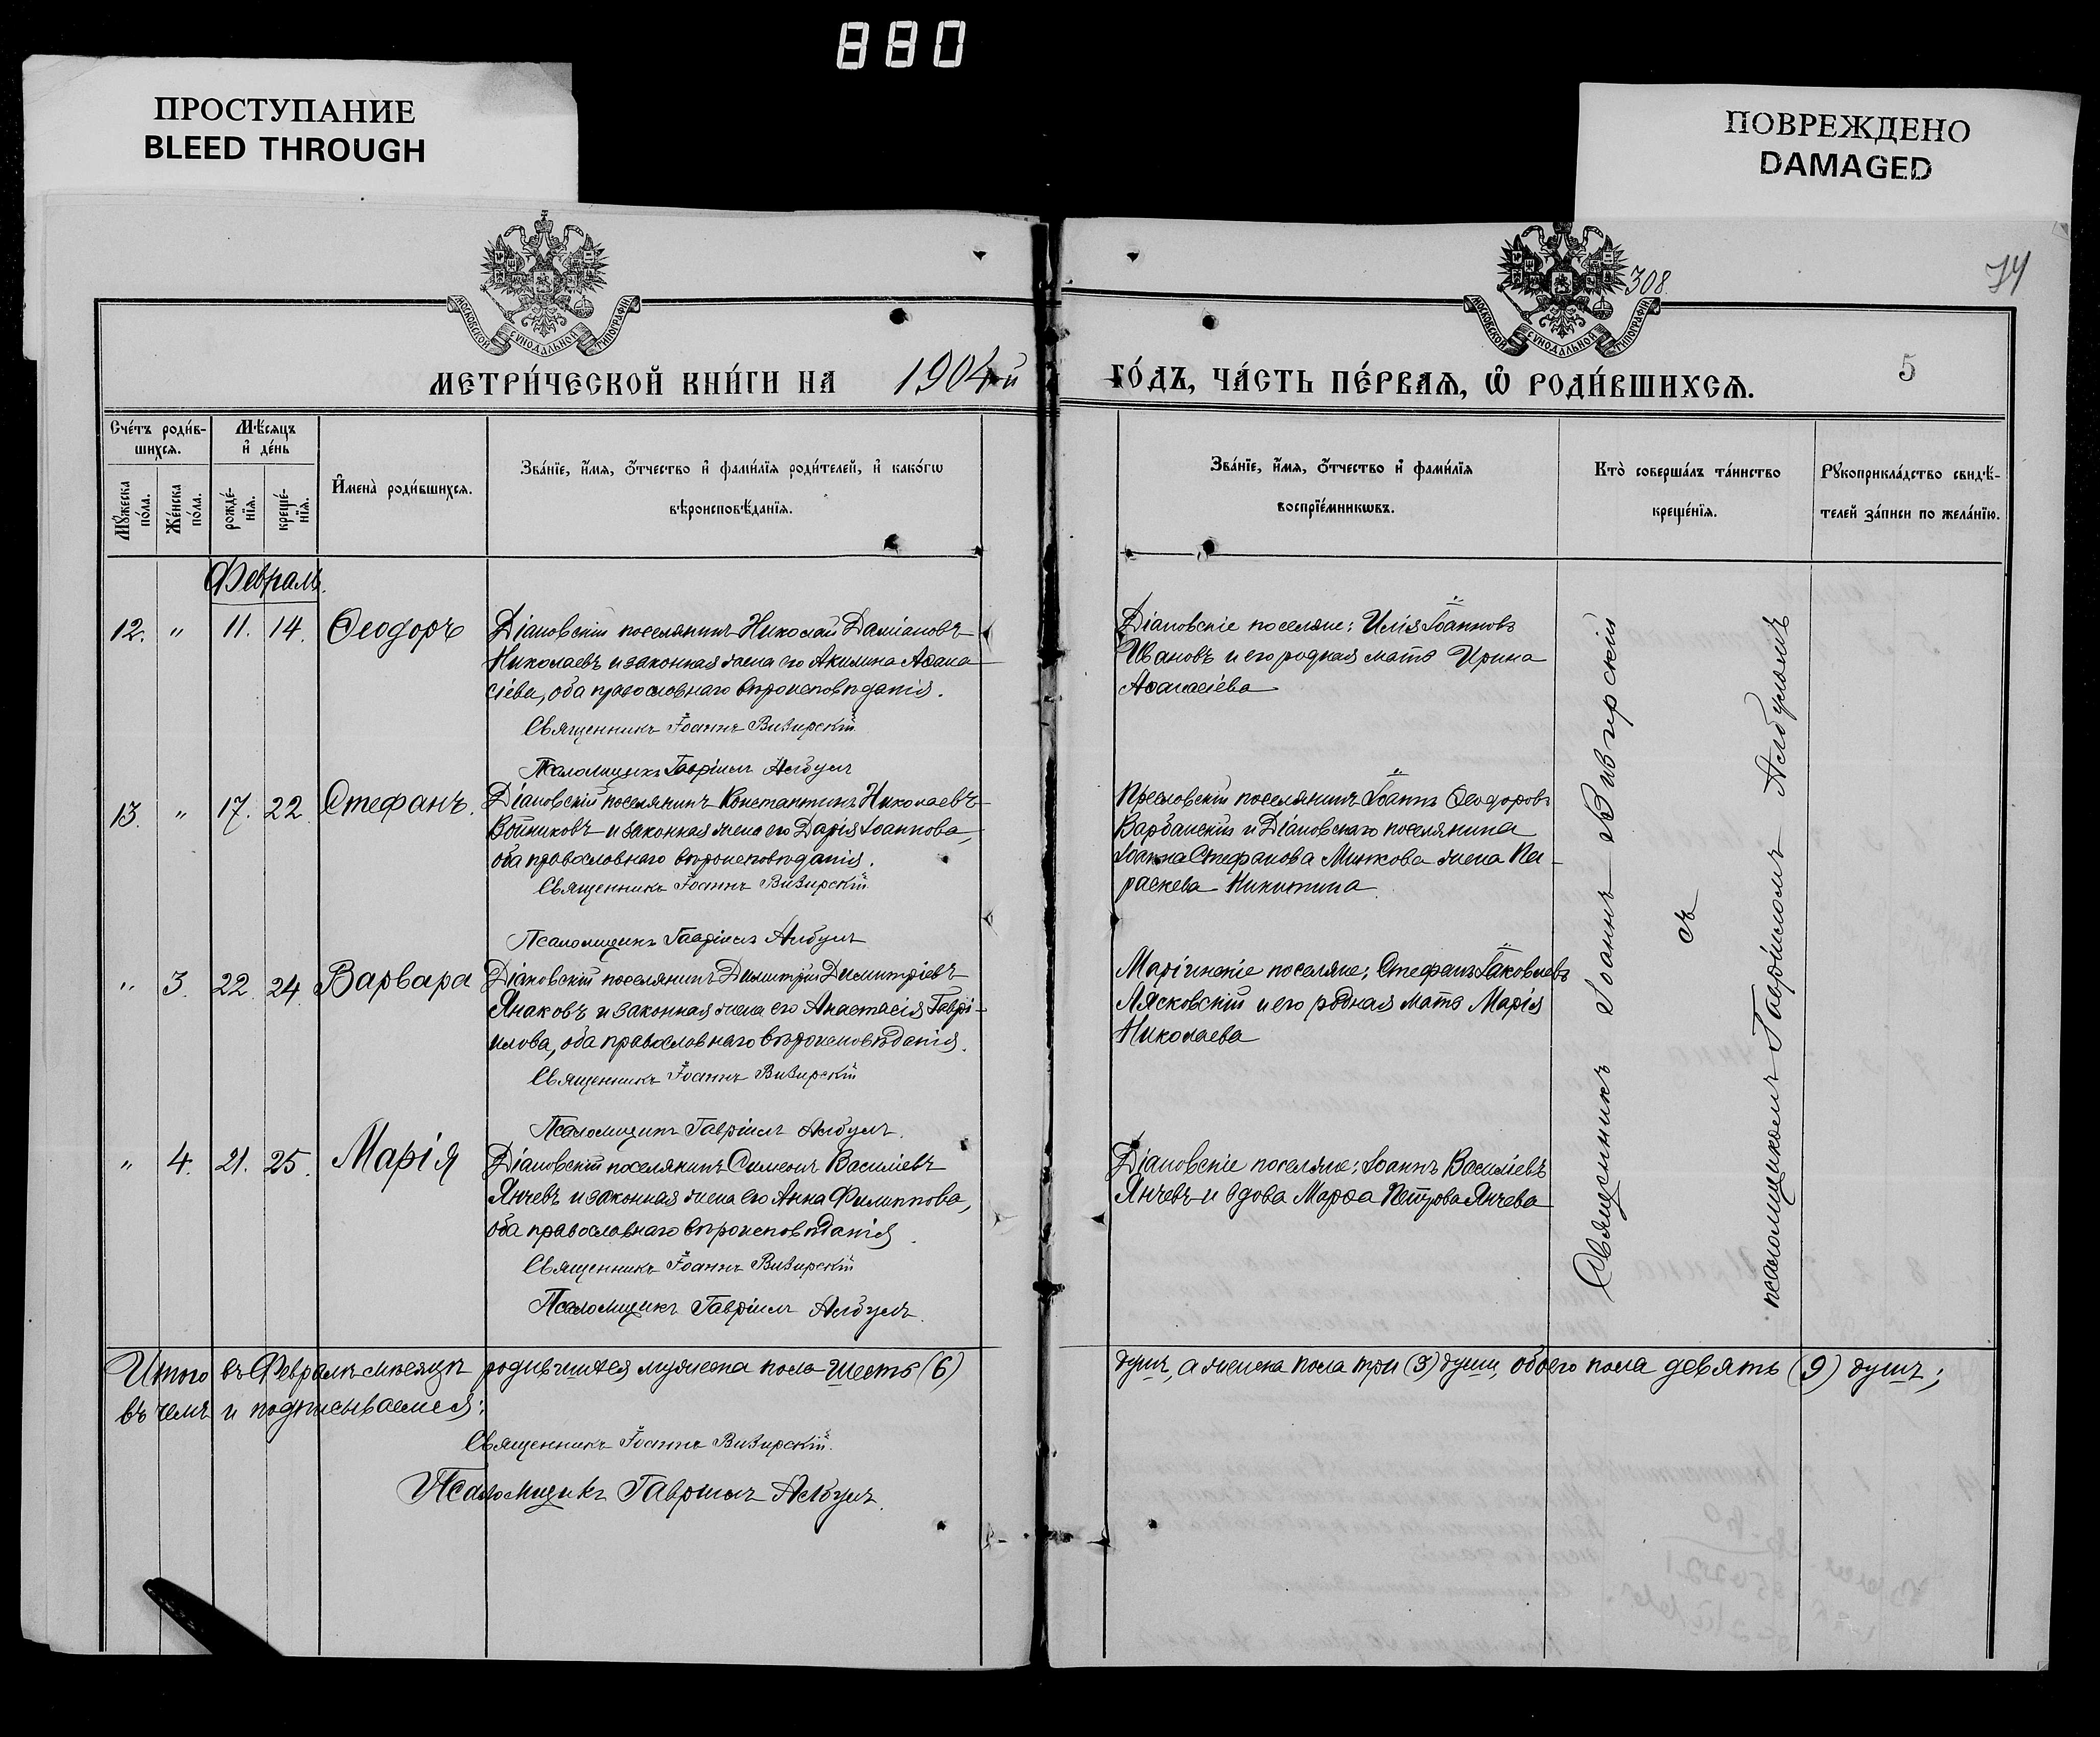 880
ПРОСТУПАНИЕ
BLEED THROUGH
ПОВРЕЖДЕНО
DAMAGED
308.
74
5
МОСКОВСКОЙ СѴНОДАЛЬНОЙ ТИПОГРАФІИ
МОСКОВСКОЙ СѴНОДАЛЬНОЙ ТИПОГРАФІИ
МЕТРИ́ЧЕСКОЙ КНИ́ГИ НА 1904й ГО́ДЪ, ЧА́СТЬ ПЕ́РВАѦ, Ѡ҆ РОДИ́ВШИХСѦ.
Сче́тъ роди́в-
шихсѧ.
Мꙋ́жеска по́ла.
Же́нска по́ла.
Мѣ́сѧцъ
и҆ де́нь
рожде́-
нїѧ.
креще́-
нїѧ.
И҆мена̀ роди́вшихсѧ.
Зва́нїе, и҆́мѧ, ѻ҆́тчество и҆ фами́лїѧ роди́телей, и҆ како́гѡ
вѣроисповѣ́данїѧ.
Зва́нїе, и҆́мѧ, ѻ҆́тчество и҆ фами́лїѧ
воспрїе́мникѡвъ.
Кто̀ соверша́лъ та́инство
креще́нїѧ.
Рꙋкоприкла́дство свидѣ́-
телей за́писи по жела́нїю.
Февраль.
12. " 11. 14. Ѳеодоръ
Діановскій поселянинъ Николай Даміановъ
Николаевъ и законная жена его Акилина Аѳана
сіева, оба православнаго вѣроисповѣданія.
Священникъ Іоаннъ Визирскій
Псаломщикъ Гавріилъ Албулъ
Діановскіе поселяне: Илія Іоанновъ
Ивановъ и его родная мать Ирина
Аѳанасіева
13. " 17. 22. Стефанъ.
Діановскій поселянинъ Константинъ Николаевъ
Войниковъ и законная жена его Дарія Іоаннова,
оба православнаго вѣроисповѣданія.
Священникъ Іоаннъ Визирскій
Псаломщикъ Гавріилъ Албулъ
Преславскій поселянинъ Іоаннъ Ѳеодоровъ
Варбанскій и Діановскаго поселянина
Іоанна Стефанова Минкова жена Па-
раскева Никитина
" 3. 22. 24. Варвара
Діановскій поселянинъ Димитрій Димитріевъ
Янаковъ и законная жена его Анастасія Гаврі-
илова, оба православнаго вѣроисповѣданія.
Священникъ Іоаннъ Визирскій
Псаломщикъ Гавріилъ Албулъ.
Маріинскіе поселяне: Стефанъ Іаковлевъ
Лясковскій и его родная мать Марія
Николаева
" 4. 21. 25. Марія
Діановскій поселянинъ Симеонъ Василіевъ
Янчевъ и законная жена его Анна Филиппова,
оба православнаго вѣроисповѣданія.
Священникъ Іоаннъ Визирскій
Псаломщикъ Гавріилъ Албулъ.
Діановскіе поселяне: Іоаннъ Василіевъ
Янчевъ и вдова Марѳа Петрова Янчева
Священникъ Іоаннъ Визирскій
съ
псаломщикомъ Гавріиломъ Албуломъ
Итого въ Февралѣ мѣсяцѣ родившихся мужеска пола шесть (6) душъ, а женска пола три (3) души, обоего пола девять (9) душъ;
въ чемъ и подписываемся:
Священникъ Іоаннъ Визирскій.
Псаломщикъ Гавріилъ Албулъ.